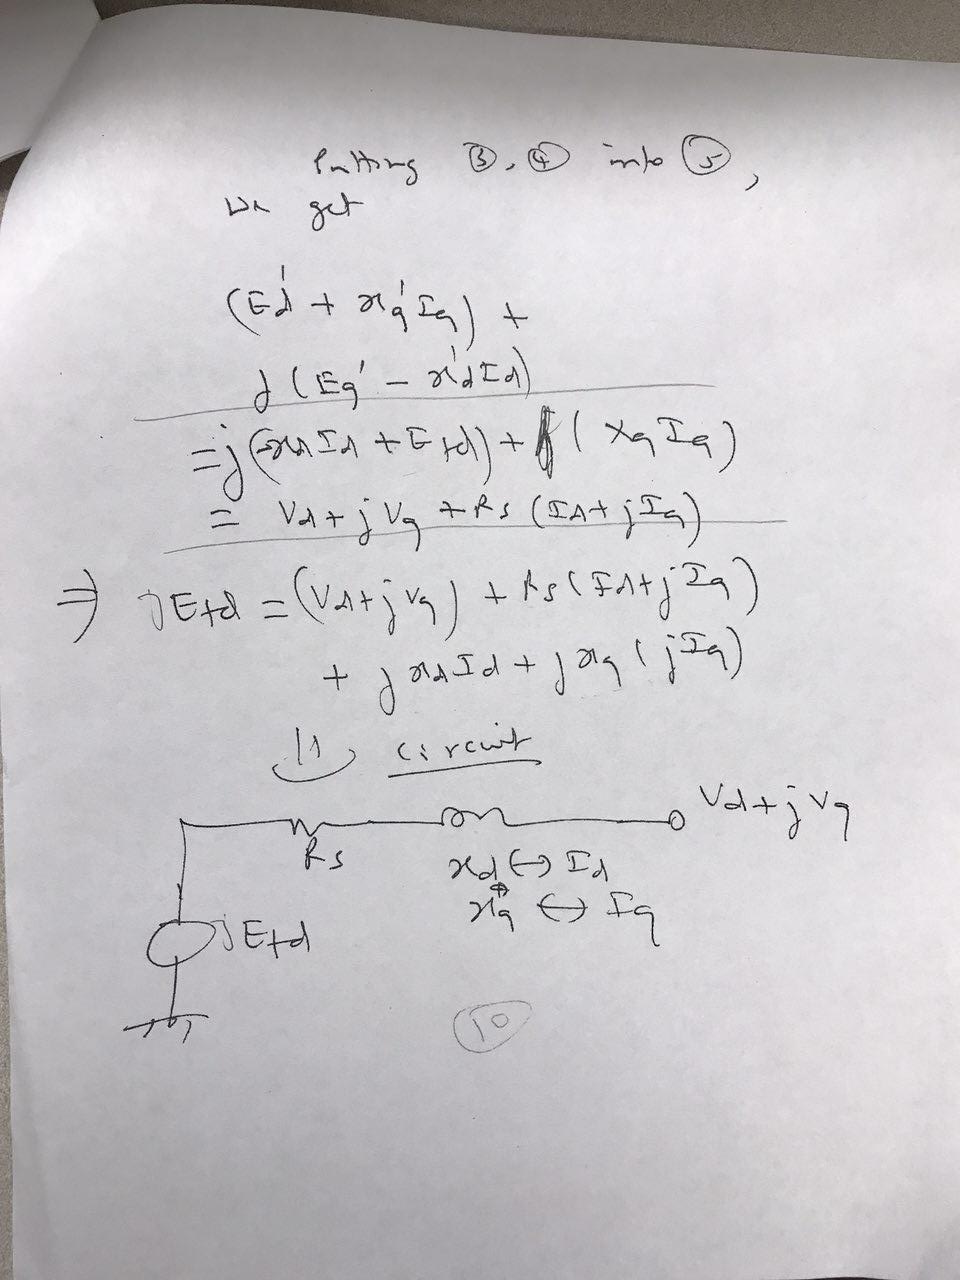 Putting ③, ④ into ⑤,
we get
(Ed' + xq' Iq) +
j (Eq' - xd' Id)
= j(-xd Id + Efd) + (xq Iq)
= Vd + j Vq + Rs (Id + j Iq)
⇒ j Efd = (Vd + j Vq) + Rs (Id + j Iq)
+ j xd Id + j xq (j Iq)
circuit
Vd + j Vq
Rs
xd ↔ Id
xq ↔ Iq
j Efd
10